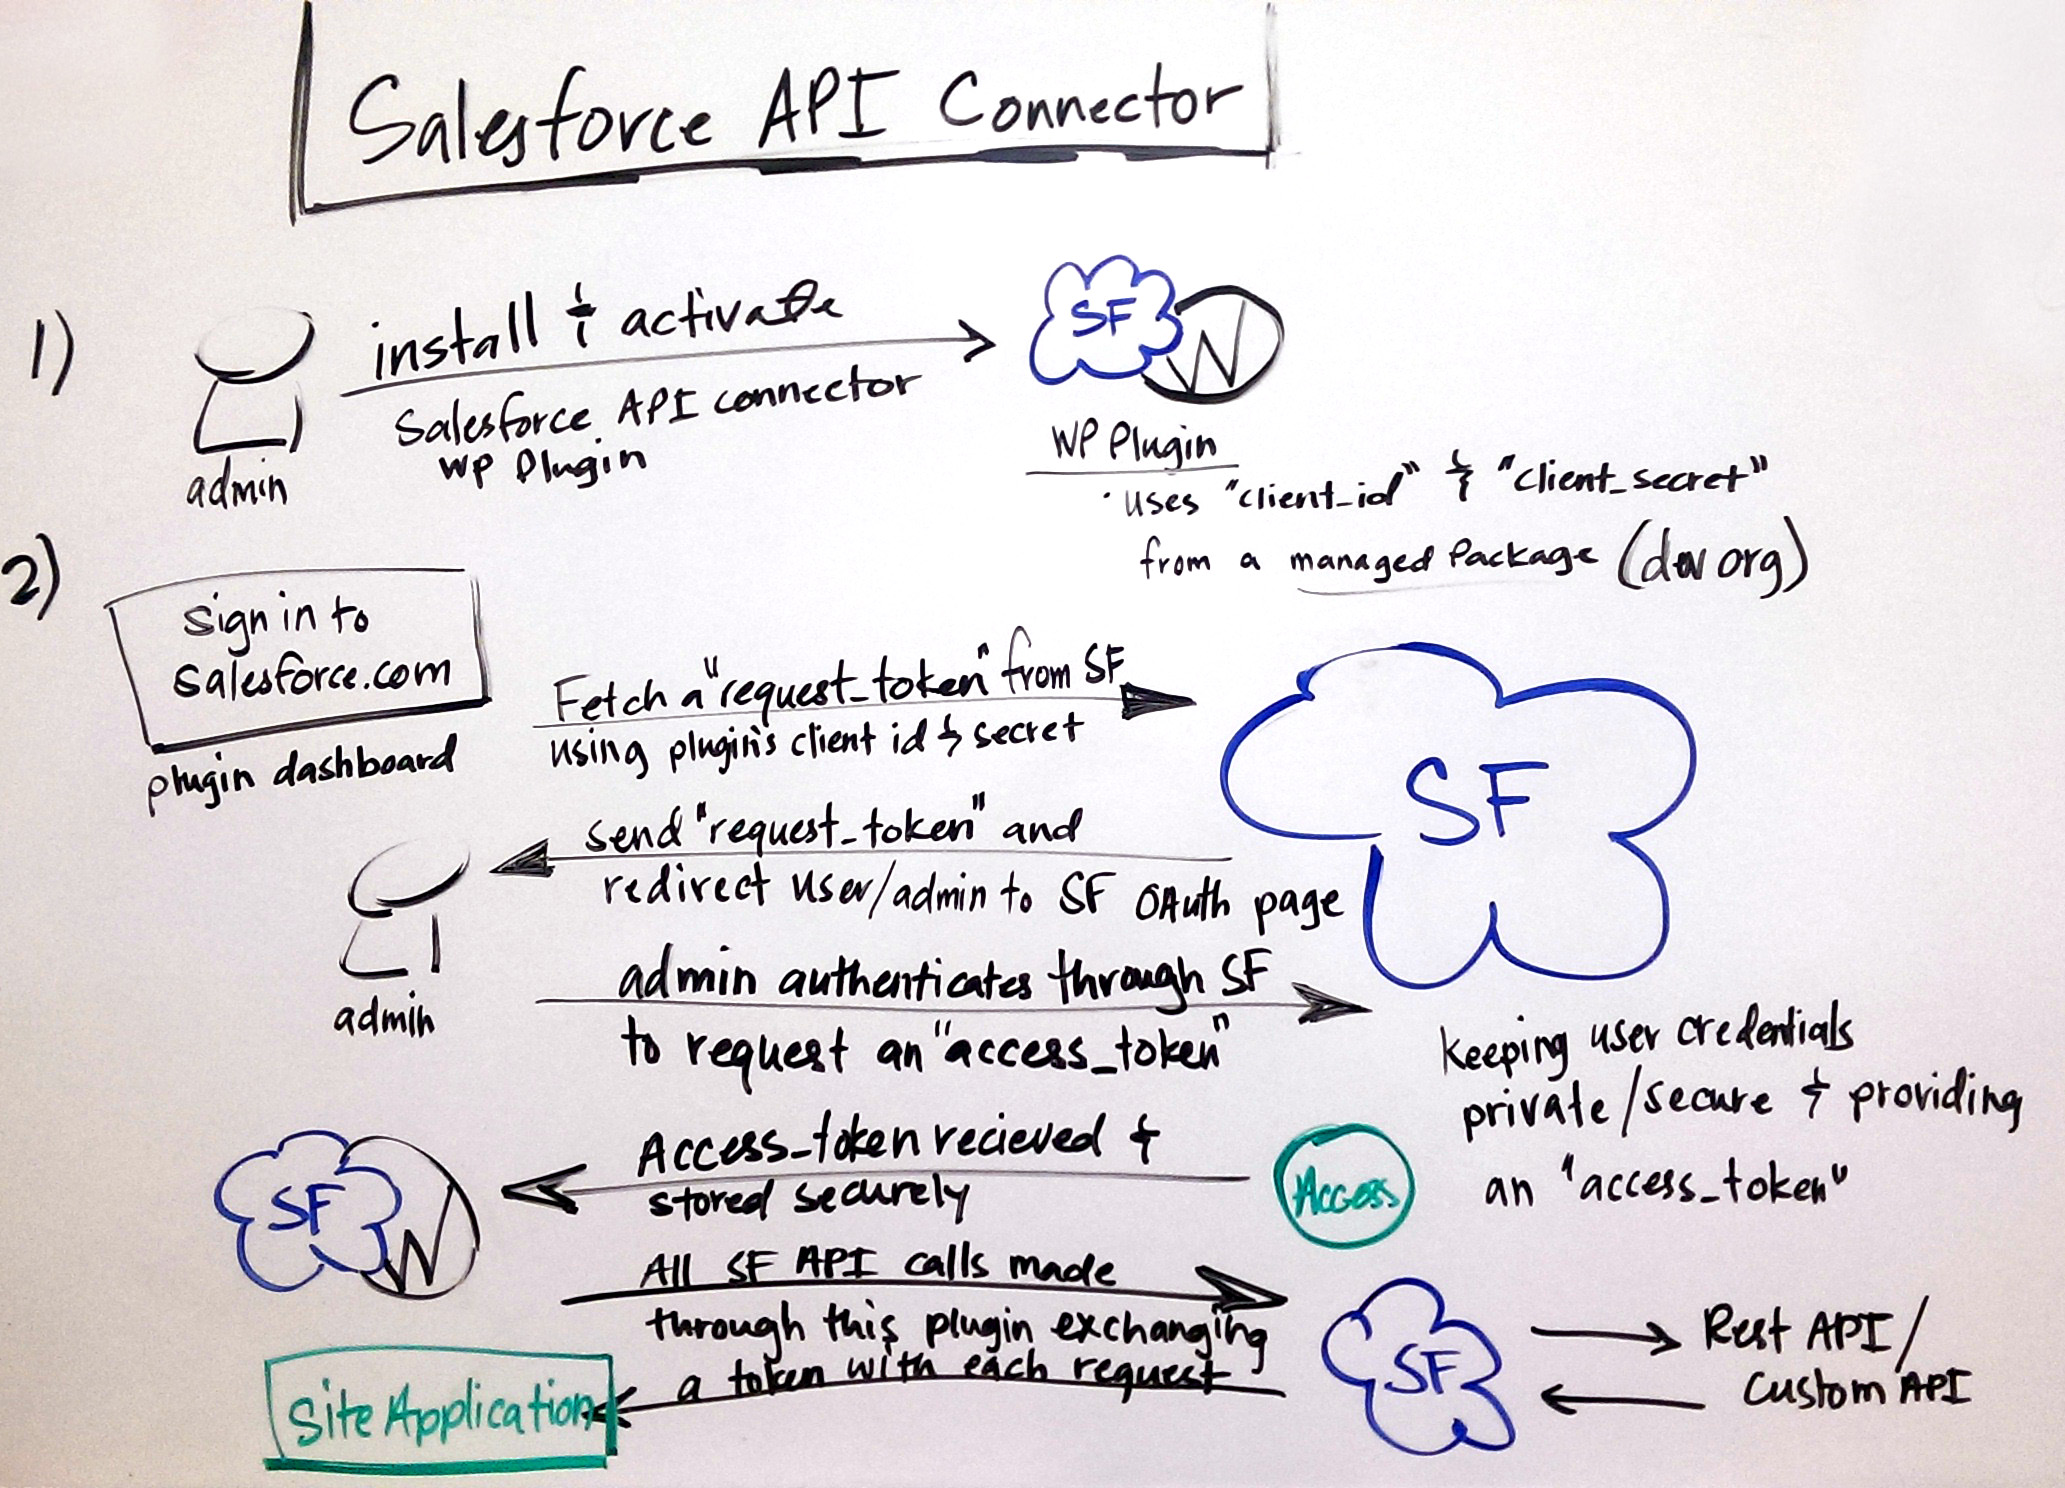 Salesforce API Connector
1)
install & activate
Salesforce API connector
WP Plugin
admin
SF
W
WP Plugin
· uses "client_id" & "client_secret"
from a managed Package (dev org)
2)
Sign in to
Salesforce.com
plugin dashboard
Fetch a "request_token" from SF
using plugin's client id & secret
SF
send "request_token" and
redirect user/admin to SF OAuth page
admin
admin authenticates through SF
to request an "access_token"
keeping user credentials
private/secure & providing
an "access_token"
SF
W
Access_token recieved &
stored securely
Access
All SF API calls made
through this plugin exchanging
a token with each request
Site Application
SF
Rest API/
Custom API